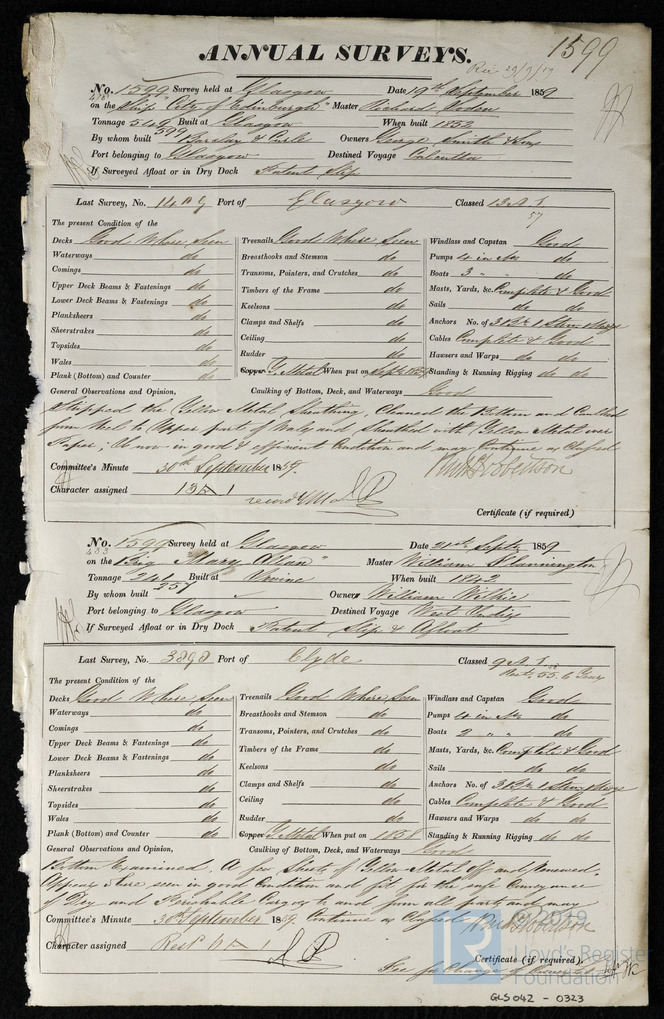 ANNUAL SURVEYS.
1599
No. 1599 Survey held at Glasgow Date 19th September 1859
on the Ship "City of Edinburgh" Master Richard
Tonnage 549 Built at Glasgow When built 1852
599
By whom built Barclay & Curle Owners George Smith & Sons
Port belonging to Glasgow Destined Voyage Calcutta
If Surveyed Afloat or in Dry Dock Patent Slip
Last Survey, No. Port of Glasgow Classed 13 A 1
57
The present Condition of the
Decks Good Where Seen Treenails Good Where Seen Windlass and Capstan Good
Waterways do Breasthooks and Stemson do Pumps 4 in No do
Comings do Transoms, Pointers, and Crutches do Boats 3 " " do
Upper Deck Beams & Fastenings do Timbers of the Frame do Masts, Yards, &c. Complete & Good
Lower Deck Beams & Fastenings do Keelsons do Sails do do
Planksheers do Clamps and Shelfs do Anchors No. of 3 Br 1 Strm
Sheerstrakes do Ceiling do Cables Complete & Good
Topsides do Rudder do Hawsers and Warps do do
Wales do Copper Y. Metal When put on Sept 1859 Standing & Running Rigging do do
Plank (Bottom) and Counter do
General Observations and Opinion, Caulking of Bottom, Deck, and Waterways Good
Stripped the Yellow Metal Sheathing, Cleaned the Bottom and Caulked
from Keel to Upper part of Wales and Sheathed with Yellow Metal over
Paper; Is now in good & efficient Condition and may Continue as Classed
Committee's Minute 30th September 1859.
Character assigned 13 A 1
Certificate (if required)
No. 1599 Survey held at Glasgow Date 21st Septr 1859
433
on the Brig "Mary Allan" Master William
Tonnage 241 Built at Irvine When built 1842
257
By whom built Owners William Wilkie
Port belonging to Glasgow Destined Voyage West Indies
If Surveyed Afloat or in Dry Dock Patent Slip & Afloat
Last Survey, No. 3898 Port of Clyde Classed 9 A 1
The present Condition of the
Decks Good Where Seen Treenails Good Where Seen Windlass and Capstan Good
Waterways do Breasthooks and Stemson do Pumps 4 in No do
Comings do Transoms, Pointers, and Crutches do Boats 2 " " do
Upper Deck Beams & Fastenings do Timbers of the Frame do Masts, Yards, &c. Complete & Good
Lower Deck Beams & Fastenings do Keelsons do Sails do do
Planksheers do Clamps and Shelfs do Anchors No. of 3 Br 1 Strm
Sheerstrakes do Ceiling do Cables Complete & Good
Topsides do Rudder do Hawsers and Warps do do
Wales do Copper Y. Metal When put on 1858 Standing & Running Rigging do do
Plank (Bottom) and Counter do
General Observations and Opinion, Caulking of Bottom, Deck, and Waterways Good
Bottom Examined. A few Sheets of Yellow Metal off and Renewed.
Appears where seen in good Condition and fit for the safe Conveyance
of Dry and Perishable Cargoes to and from all parts and may
Committee's Minute 30th September 1859. Continue as Classed
Character assigned Rest 6 A 1
Certificate (if required).
Fee for Change of
© 2019
LR
Lloyd's Register
Foundation
GLS042 - 0323